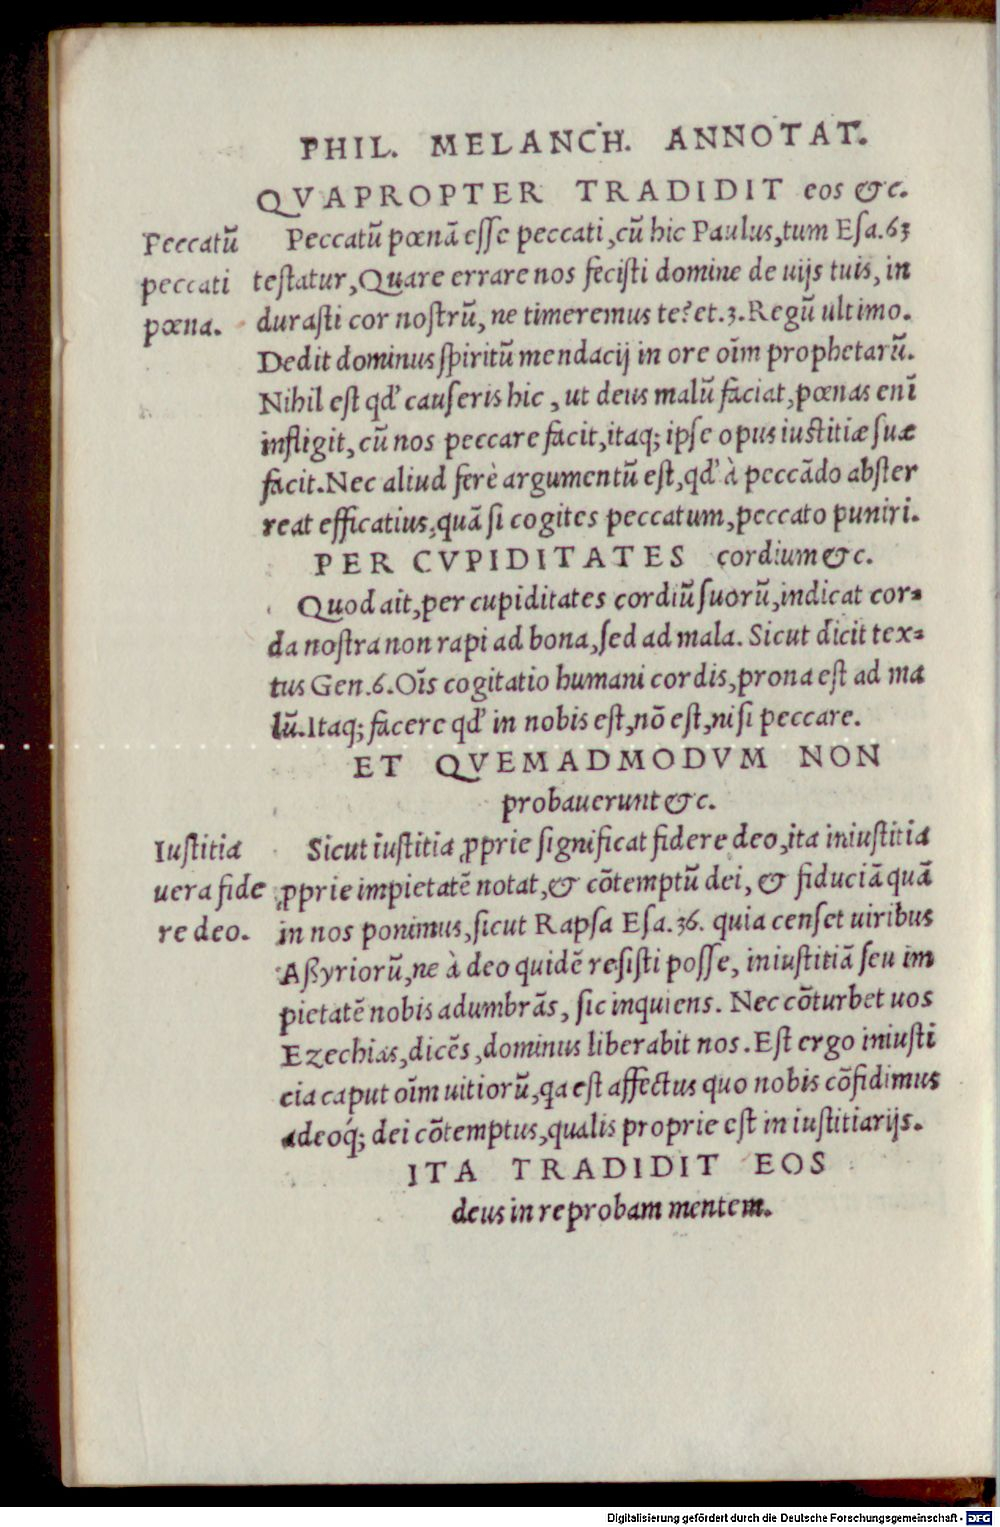 PHIL. MELANCH. ANNOTAT.
QVAPROPTER TRADIDIT eos &c.
Peccatū
peccati
pœna.
Peccatū pœnā esse peccati, cū hic Paulus, tum Esa.63
testatur, Quare errare nos fecisti domine de uijs tuis, in
durasti cor nostrū, ne timeremus te? et.3. Regū ultimo.
Dedit dominus spiritū mendacij in ore oīm prophetarū.
Nihil est qd' causeris hic, ut deus malū faciat, pœnas enī
infligit, cū nos peccare facit, itaq; ipse opus iustitiæ suæ
facit. Nec aliud ferè argumentū est, qd' à peccādo abster
reat efficatius, quā si cogites peccatum, peccato puniri.
PER CVPIDITATES cordium &c.
Quod ait, per cupiditates cordiū suorū, indicat cor=
da nostra non rapi ad bona, sed ad mala. Sicut dicit tex=
tus Gen.6. Oīs cogitatio humani cordis, prona est ad ma
lū. Itaq; facere qd' in nobis est, nō est, nisi peccare.
ET QVEMADMODVM NON
probauerunt &c.
Iustitia
uera fide
re deo.
Sicut iustitia ꝓprie significat fidere deo, ita iniustitia
ꝓprie impietatē notat, & cōtemptū dei, & fiduciā quā
in nos ponimus, sicut Rapsa Esa.36. quia censet uiribus
Aßyriorū, ne à deo quidē resisti posse, iniustitiā seu im
pietatē nobis adumbrās, sic inquiens. Nec cōturbet uos
Ezechias, dicēs, dominus liberabit nos. Est ergo iniusti
cia caput oīm uitiorū, qa est affectus quo nobis cōfidimus
adeoq́; dei cōtemptus, qualis proprie est in iustitiarijs.
ITA TRADIDIT EOS
deus in reprobam mentem.
Digitalisierung gefördert durch die Deutsche Forschungsgemeinschaft - DFG